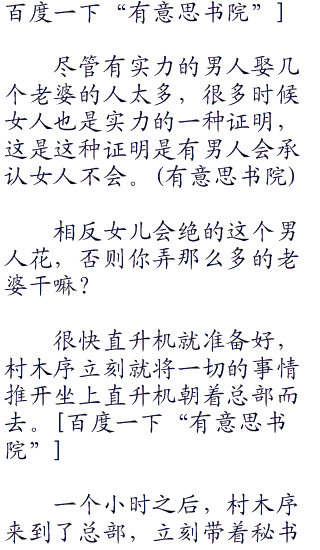 百度一下“有意思书院”]
尽管有实力的男人娶几
个老婆的人太多，很多时候
女人也是实力的一种证明，
这是这种证明是有男人会承
认女人不会。(有意思书院)
相反女儿会绝的这个男
人花，否则你弄那么多的老
婆干嘛？
很快直升机就准备好，
村木序立刻就将一切的事情
推开坐上直升机朝着总部而
去。[百度一下“有意思书
院”]
一个小时之后，村木序
来到了总部，立刻带着秘书